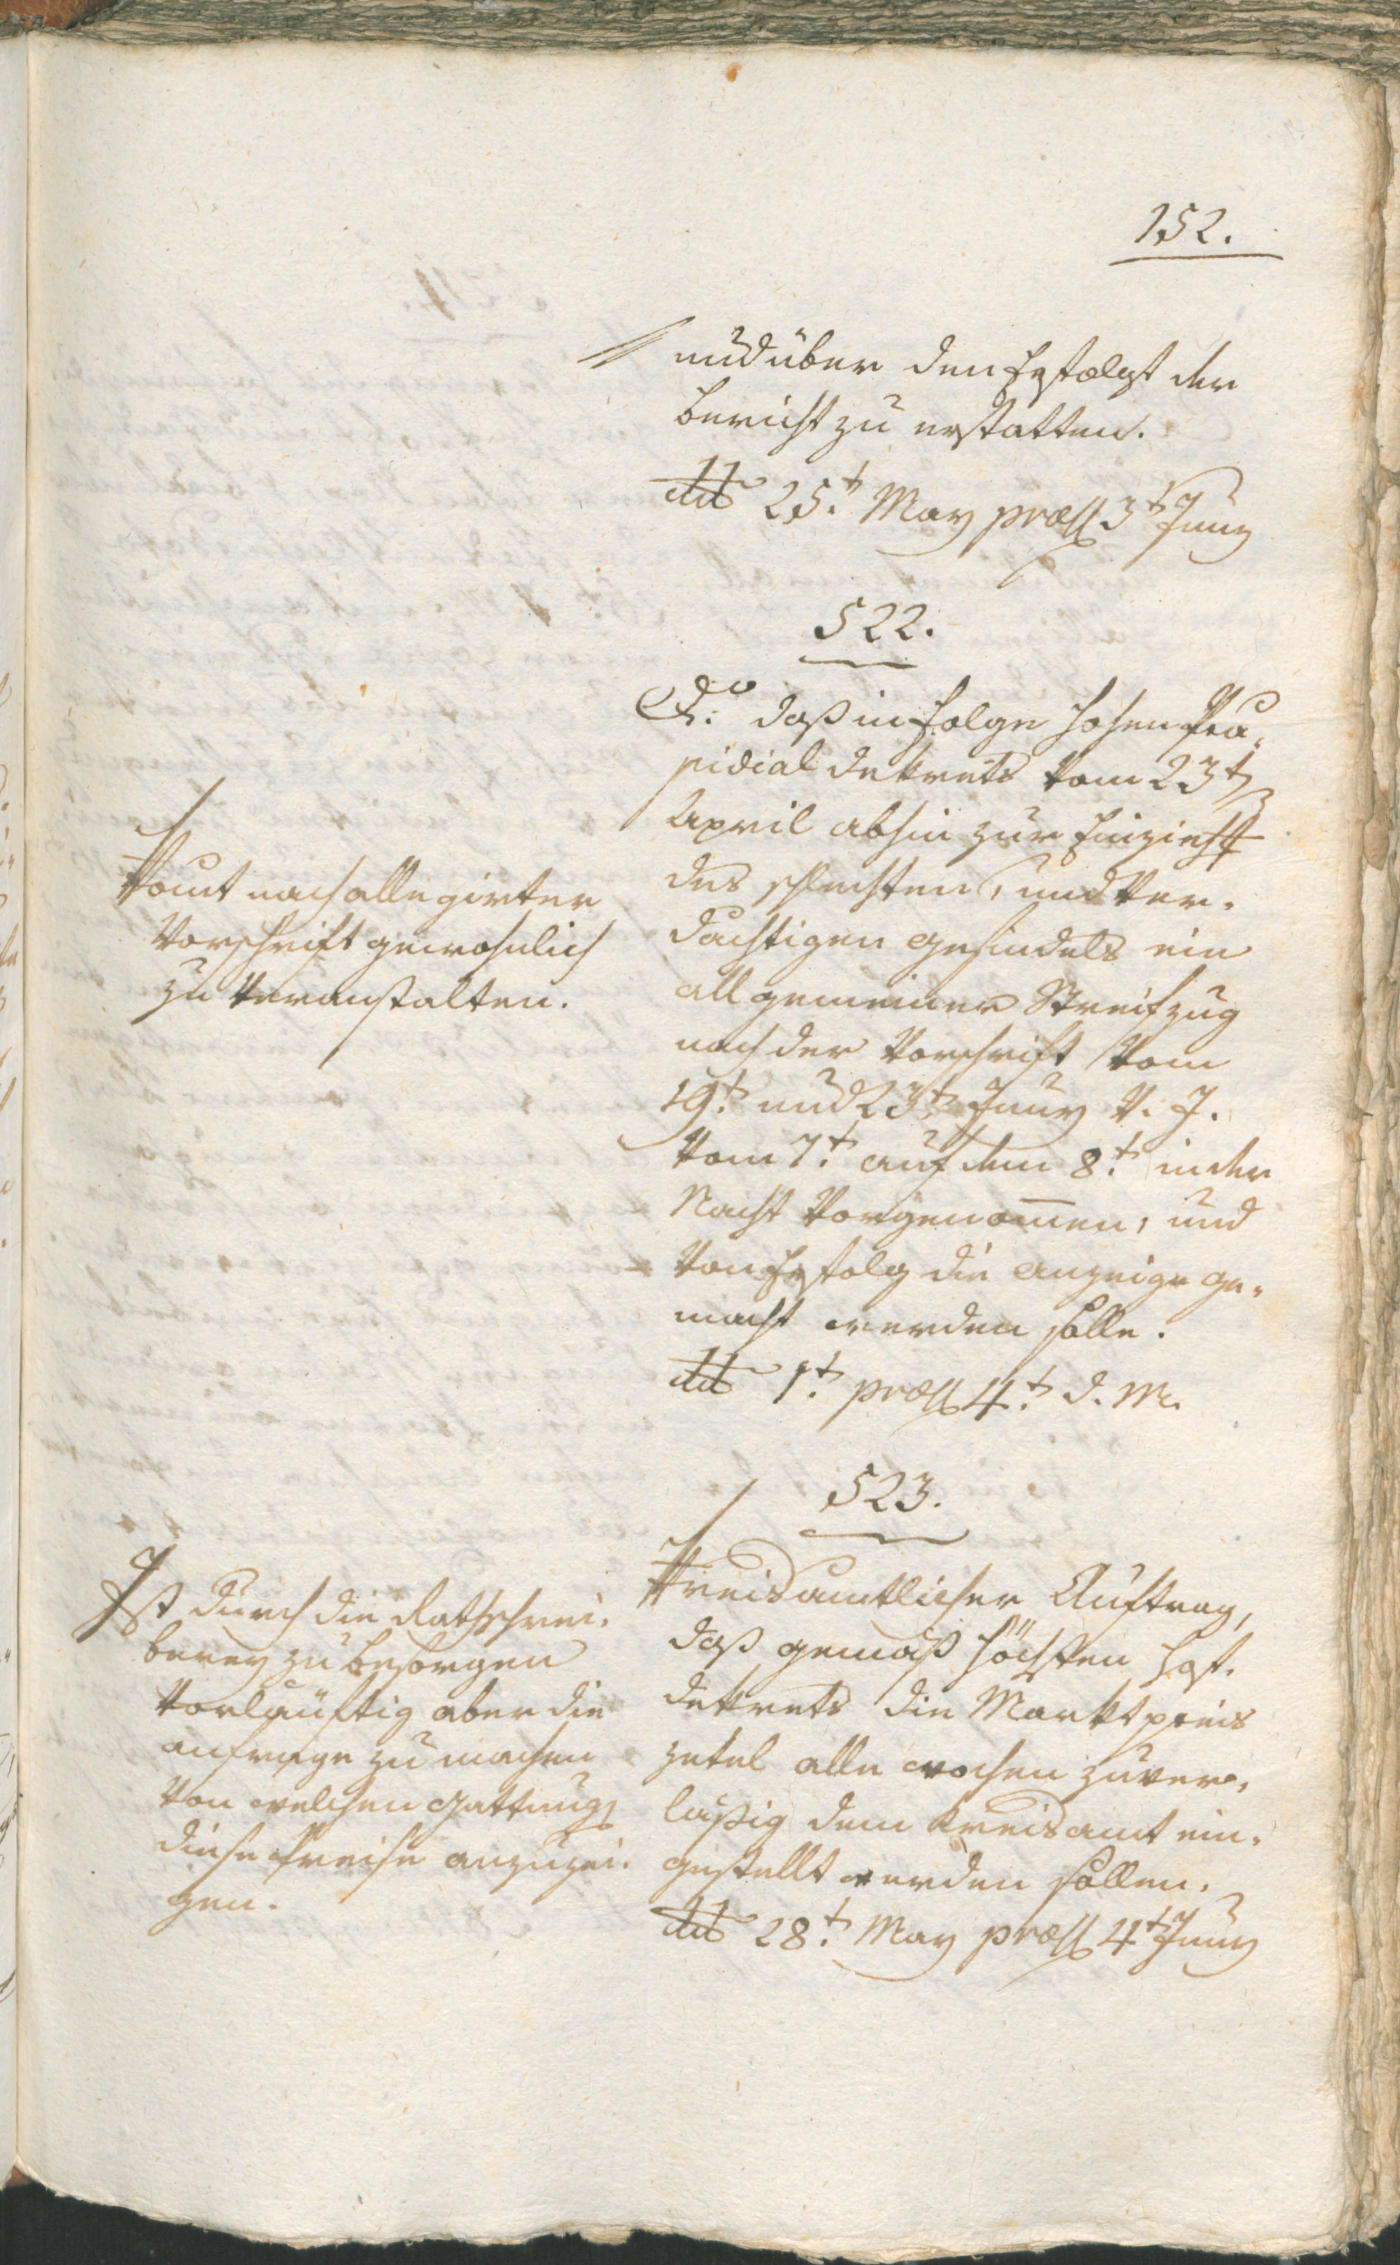 152.
und über den Erfolgt der
Bericht zu erstatten.
ddt 25t. May præs 3t Juny
522.
Eod. daß in Folge hohen Præ„
sidial dekrets vom 23t
April abhin zur Einziehung
des schlechten, und ver„
dächtigen Gesindels ein
allgemeiner Streifzug
nach der Vorschrift vom
19t. und 23t Juny v. J.
vom 7t. auf dem 8t. in der
Nacht vorgenommen, und
von Erfolg die Anzeige ge„
macht werden solle.
ddt 1t. præs 4t. d. M.
nach allegirter
Vorschrift gewohnlich
zu veranstalten.
523.
Kreisamtlicher Auftrag,
daß gemäß höchsten Hof„
dekrets die Marktpreis
zetel alle wochen zuver„
läßig dem Kreisamt ein„
gestellt werden sollen.
ddt 28t. May præs 4t Juny
Ist durch die Rathschrei„
berey zu besorgen
vorläuftig aber die
anfrage zu machen
von welchen Gattung
diese Preise anzuzei„
gen.